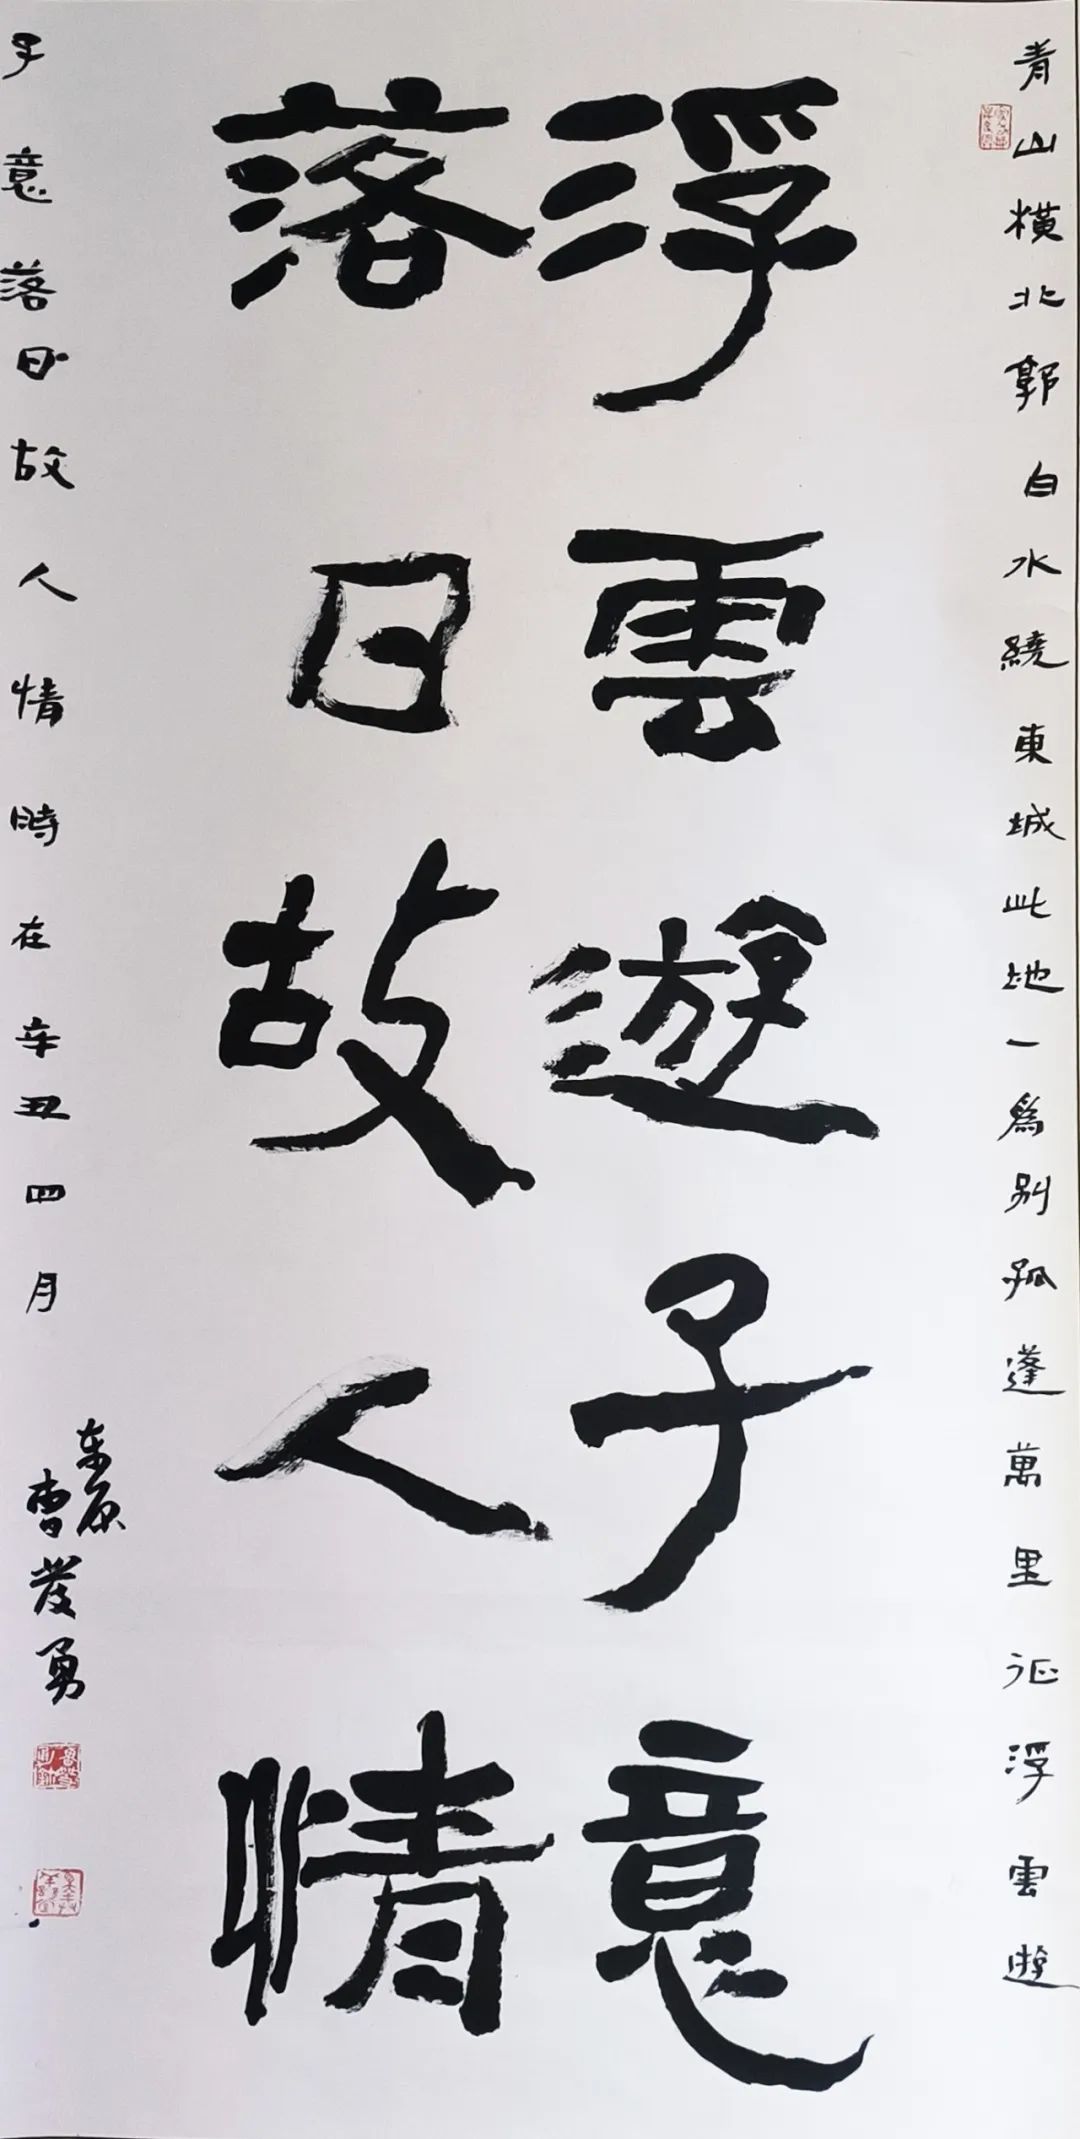 青山橫北郭白水繞東城此地一為别孤蓬萬里征浮雲遊
浮雲遊子意
落日故人情
子意落日故人情時在辛丑四月
东原
曹發勇